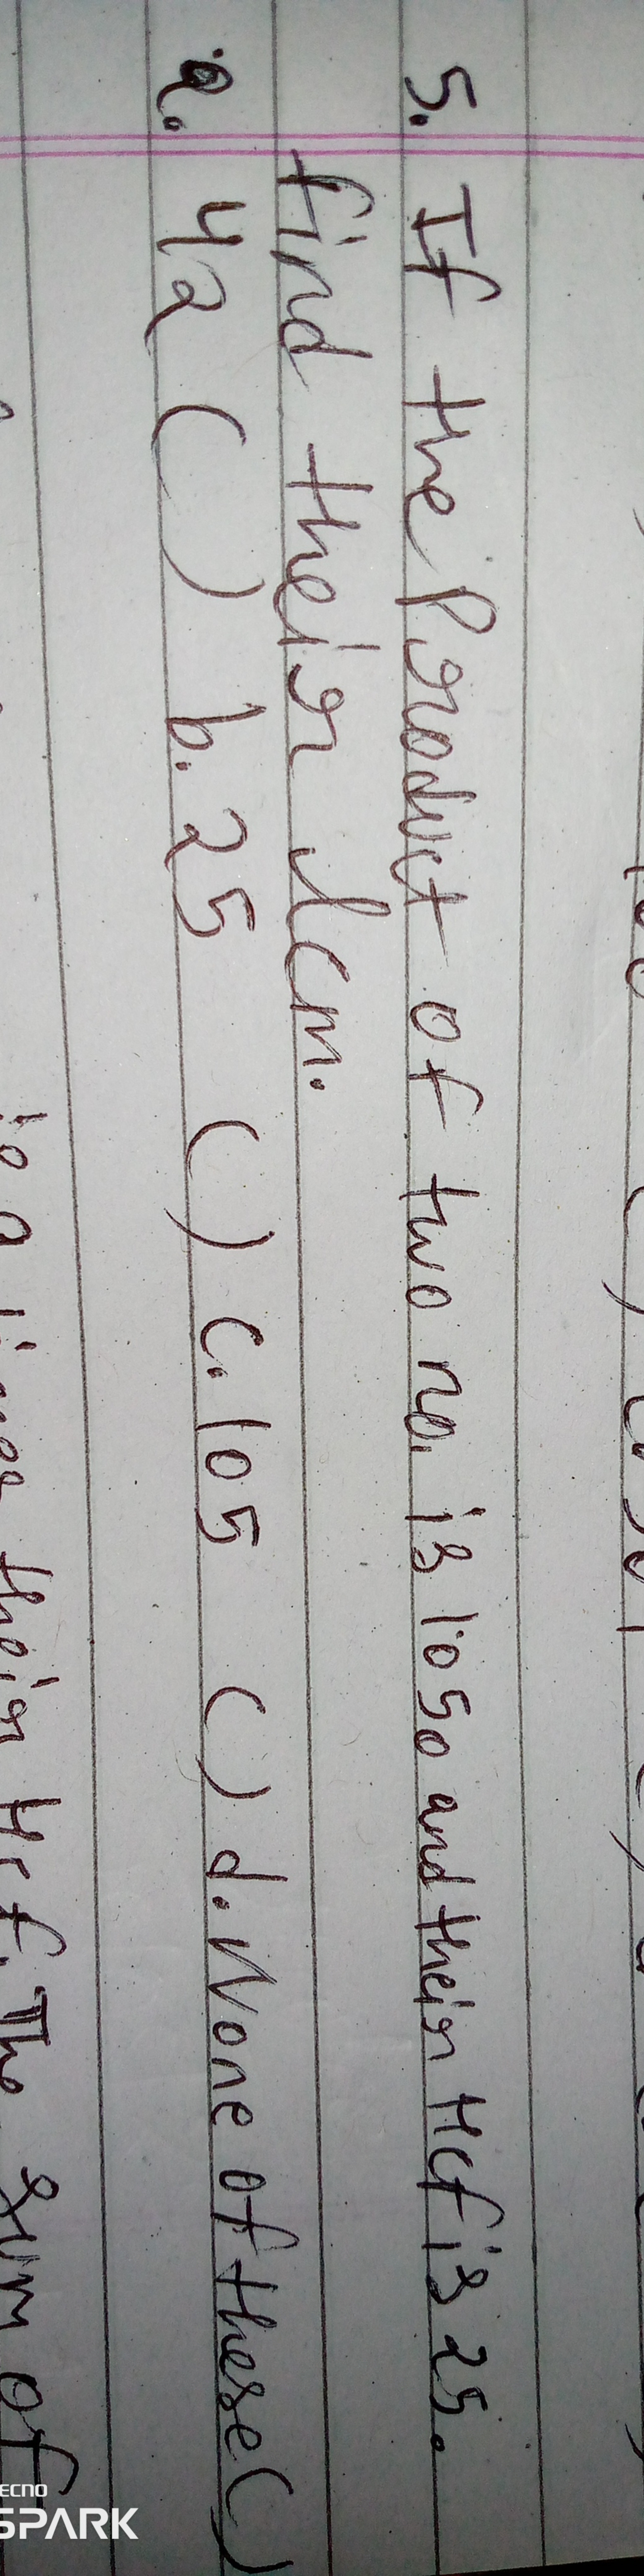 5. If the Product of two no. is 1050 and their Hcf is 25.
find their lcm.
a. 42 ( ) b. 25 ( ) c. 105 ( ) d. None of these ( )
their Hcf. The sum of
TECNO
SPARK